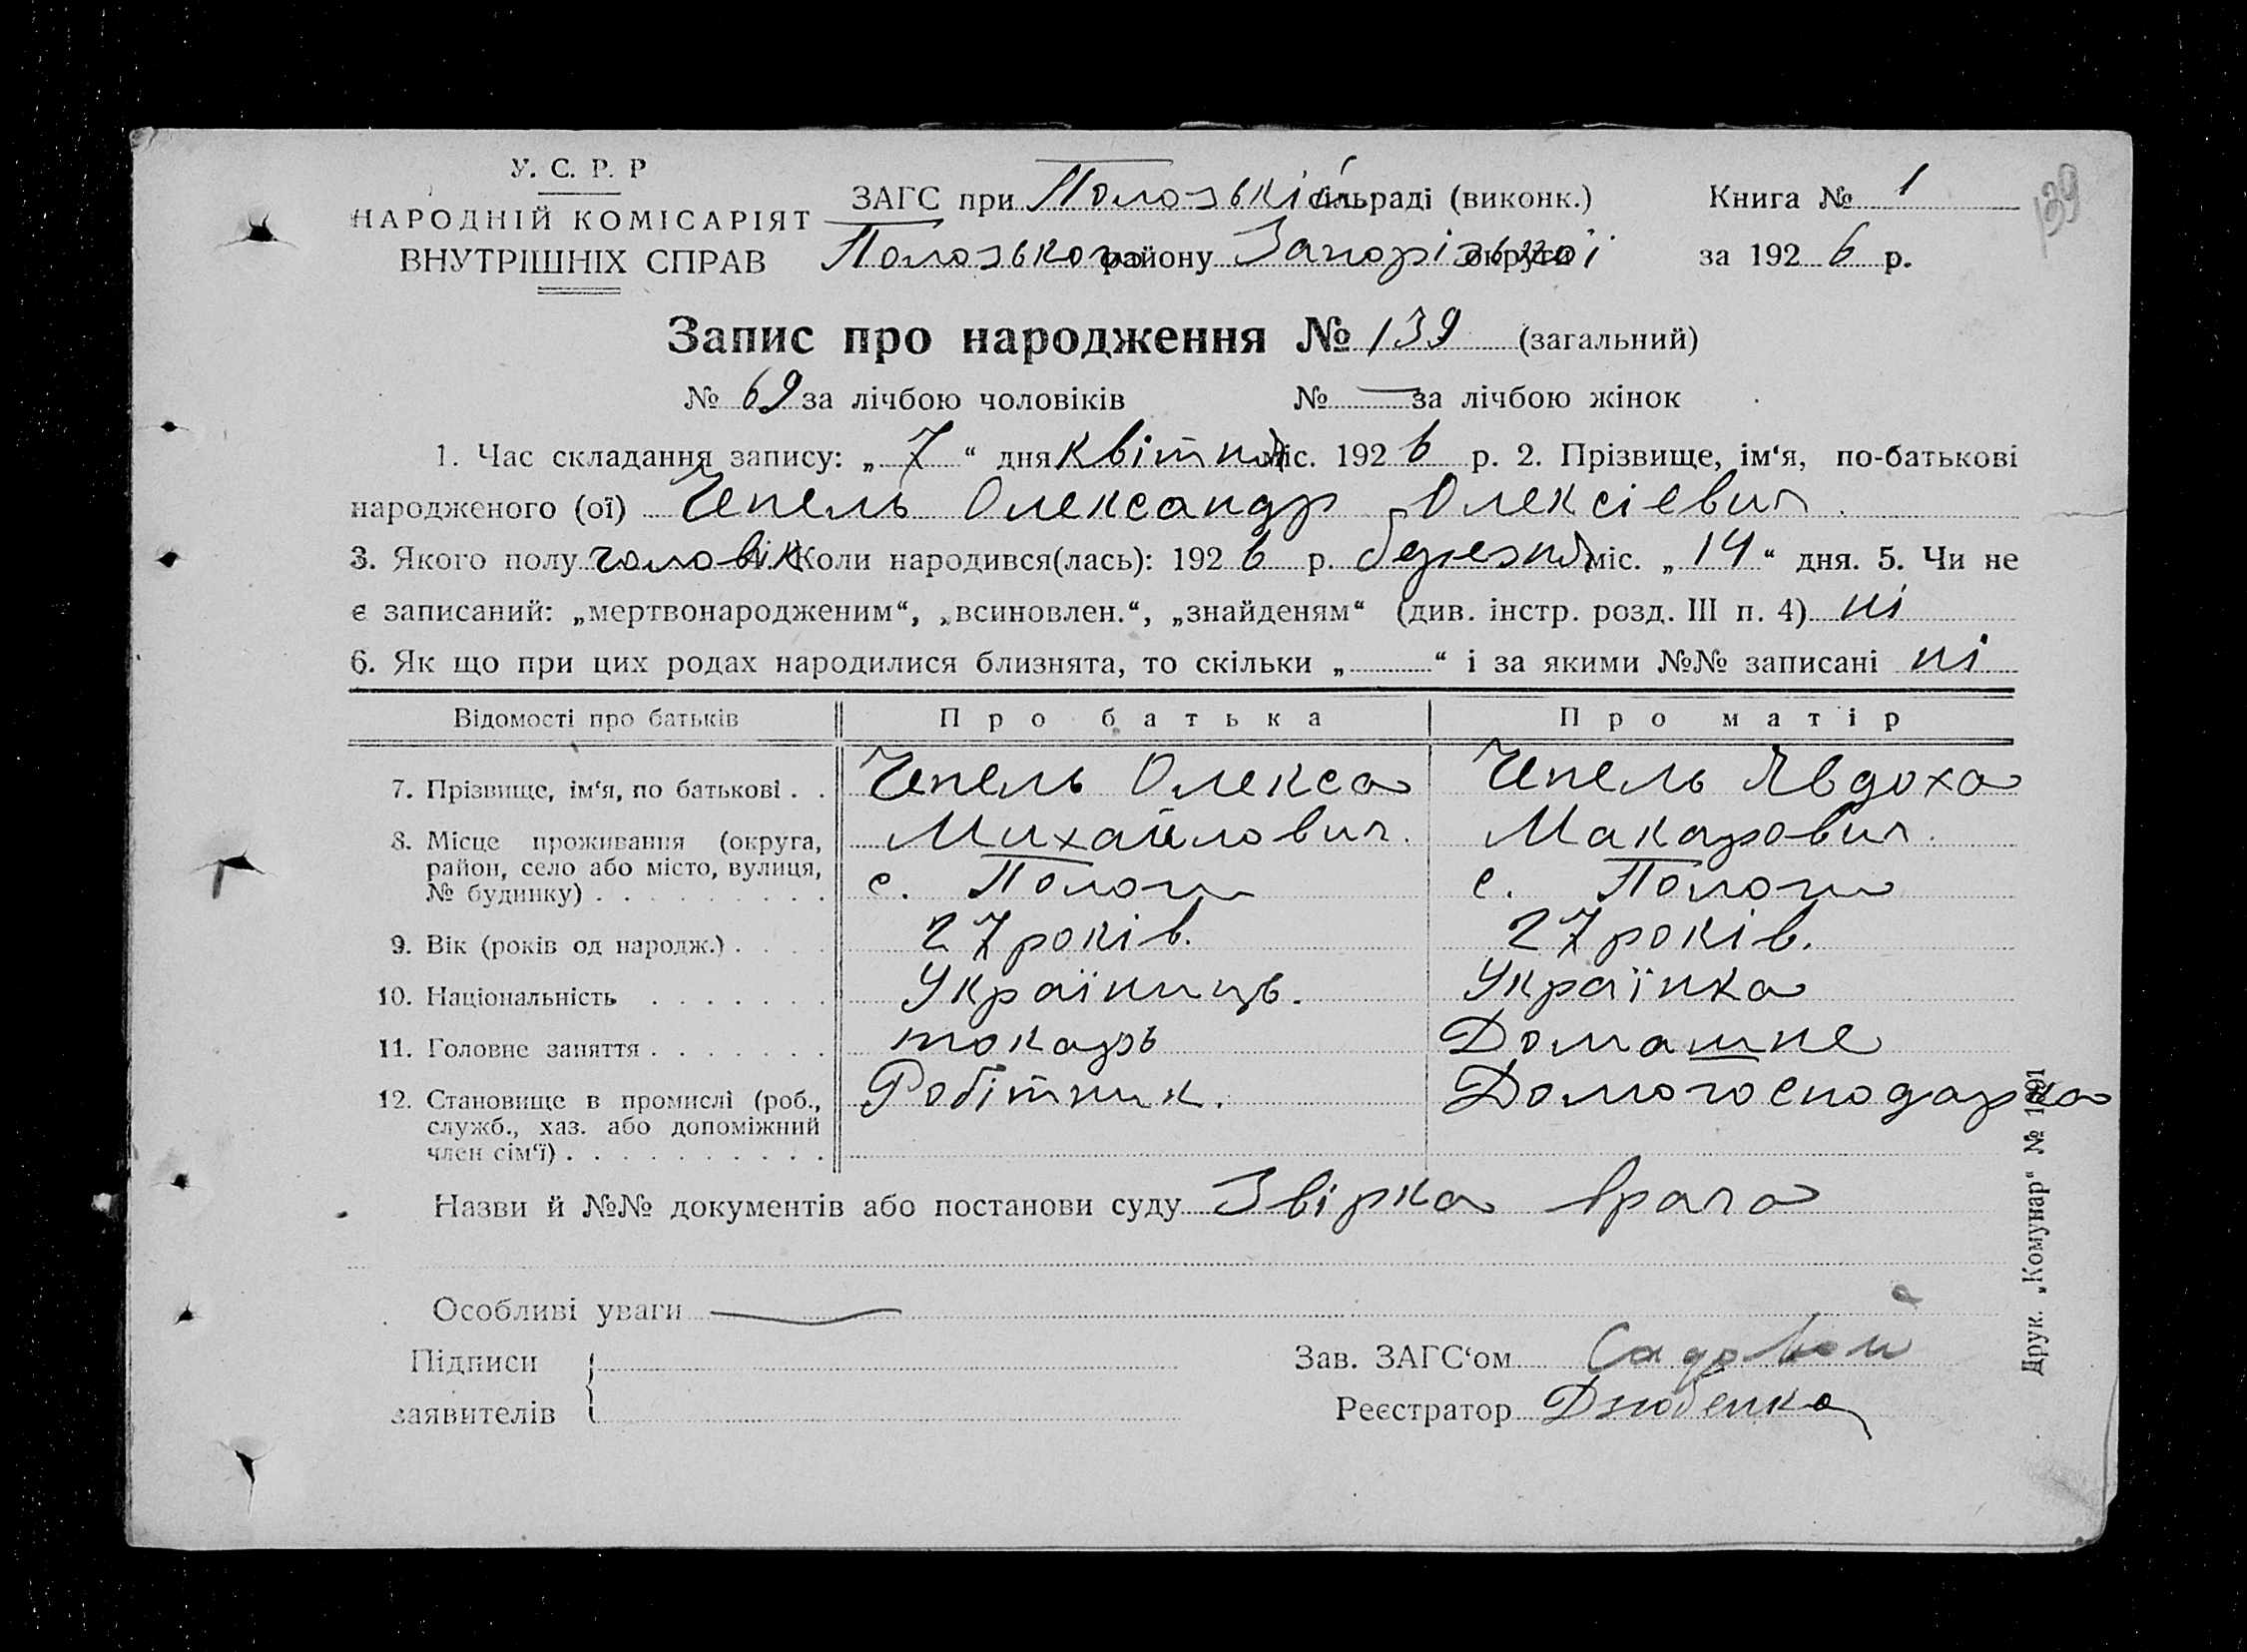 У. С. Р. Р
НАРОДНІЙ КОМІСАРІЯТ
ВНУТРІШНІХ СПРАВ
ЗАГС при Полозькій сільраді (виконк.)
Полозького району Запорізької округи
Книга № 1
за 1926 р.
139
Запис про народження № 139 (загальний)
№ 69 за лічбою чоловіків № — за лічбою жінок
1. Час складання запису: „7“ дня квітня міс. 1926 р. 2. Прізвище, ім‘я, по-батькові
народженого (ої) Чепель Олександр Олексієвич.
3. Якого полу чоловік 4. Коли народився(лась): 1926 р. березня міс. „14“ дня. 5. Чи не
є записаний: „мертвонародженим“, „всиновлен.“, „знайденям“ (див. інстр. розд. III п. 4) ні
6. Як що при цих родах народилися близнята, то скільки „ “ і за якими №№ записані ні
Відомості про батьків Про батька Про матір
7. Прізвище, ім‘я, по батькові . . Чепель Олекса Чепель Явдоха
Михайлович. Макарович.
8. Місце проживання (округа,
район, село або місто, вулиця,
№ будинку) . . . . . . . . . с. Пологи с. Пологи
9. Вік (років од народж.) . . . . 27 років. 27 років.
10. Національність . . . . . . . Українець. Українка
11. Головне заняття . . . . . . . токарь Домашне
12. Становище в промислі (роб., Робітник. Домогосподарка
служб., хаз. або допоміжний
член сім‘ї) . . . . . . . . . .
Назви й №№ документів або постанови суду Звірка врача
Особливі уваги —
Підписи
заявителів
Зав. ЗАГС‘ом Садовой
Реєстратор Дзюбенко
Друк. „Комунар“ № 1091